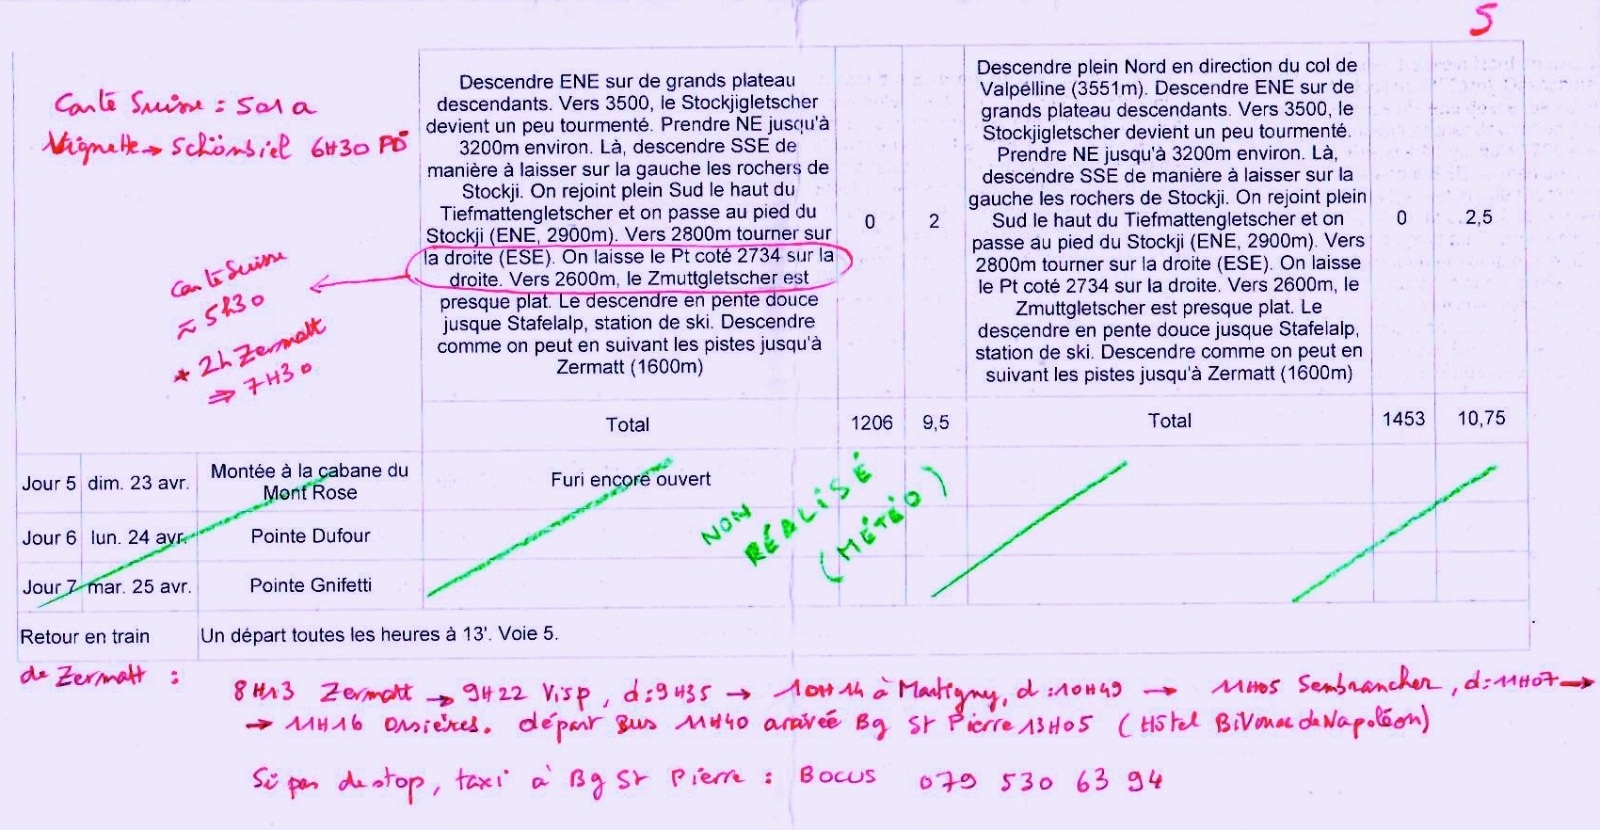 5
Carte Suisse : 501 a
Vignette → Schönbiel 6H30 PD
Carte Suisse
≈ 5h30
* 2h Zermatt
⇒ 7H30
Descendre ENE sur de grands plateau
descendants. Vers 3500, le Stockjigletscher
devient un peu tourmenté. Prendre NE jusqu'à
3200m environ. Là, descendre SSE de
manière à laisser sur la gauche les rochers de
Stockji. On rejoint plein Sud le haut du
Tiefmattengletscher et on passe au pied du
Stockji (ENE, 2900m). Vers 2800m tourner sur
la droite (ESE). On laisse le Pt coté 2734 sur la
droite. Vers 2600m, le Zmuttgletscher est
presque plat. Le descendre en pente douce
jusque Stafelalp, station de ski. Descendre
comme on peut en suivant les pistes jusqu'à
Zermatt (1600m)
0
2
Descendre plein Nord en direction du col de
Valpélline (3551m). Descendre ENE sur de
grands plateau descendants. Vers 3500, le
Stockjigletscher devient un peu tourmenté.
Prendre NE jusqu'à 3200m environ. Là,
descendre SSE de manière à laisser sur la
gauche les rochers de Stockji. On rejoint plein
Sud le haut du Tiefmattengletscher et on
passe au pied du Stockji (ENE, 2900m). Vers
2800m tourner sur la droite (ESE). On laisse
le Pt coté 2734 sur la droite. Vers 2600m, le
Zmuttgletscher est presque plat. Le
descendre en pente douce jusque Stafelalp,
station de ski. Descendre comme on peut en
suivant les pistes jusqu'à Zermatt (1600m)
0
2,5
Total 1206 9,5 Total 1453 10,75
Jour 5 dim. 23 avr. Montée à la cabane du
Mont Rose
Furi encore ouvert
Jour 6 lun. 24 avr. Pointe Dufour
Jour 7 mar. 25 avr. Pointe Gnifetti
NON
RÉALISÉ
(MÉTÉO)
Retour en train Un départ toutes les heures à 13'. Voie 5.
de Zermatt :
8H13 Zermatt → 9H22 Visp, d:9H35 → 10H14 à Martigny, d:10H49 → 11H05 Sembrancher, d:11H07 →
→ 11H16 Orsières. départ Bus 11H40 arrivée Bg St Pierre 13H05 (Hôtel Bivouac de Napoléon)
Si pas de stop, taxi à Bg St Pierre : Bocus 079 530 63 94